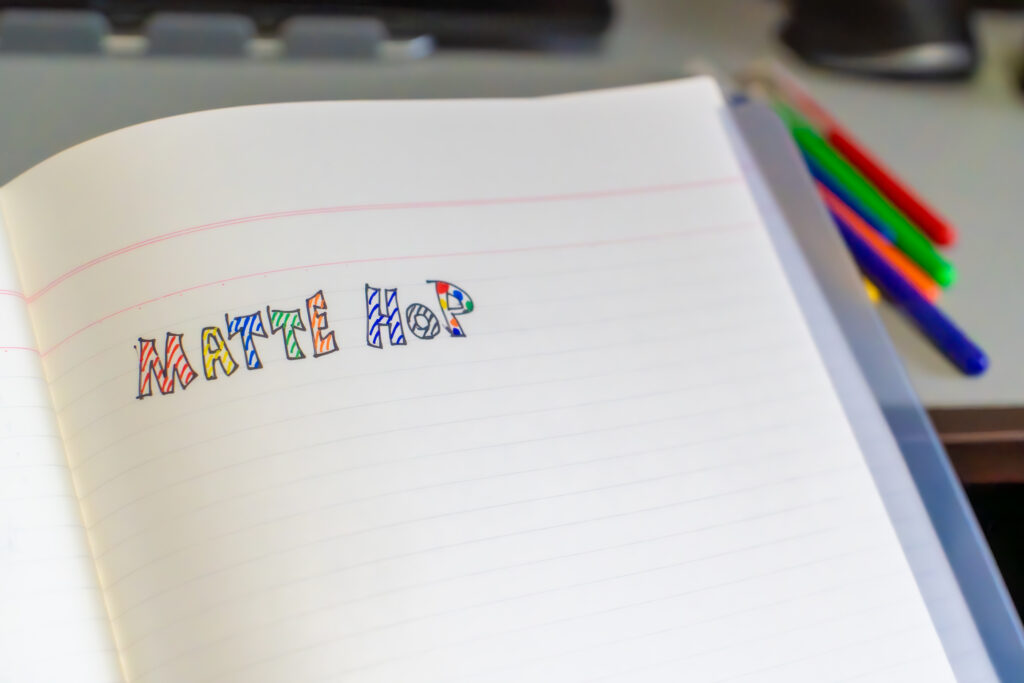 MATTE HOP